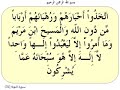 بسم الله الرحمن الرحيم
اتَّخَذُوا أَحْبَارَهُمْ وَرُهْبَانَهُمْ أَرْبَاباً
مِّن دُونِ اللَّهِ وَالْمَسِيحَ ابْنَ مَرْيَمَ
وَمَا أُمِرُوا إِلَّا لِيَعْبُدُوا إِلَـٰهاً وَاحِداً
لَّا إِلَـٰهَ إِلَّا هُوَ سُبْحَانَهُ عَمَّا
يُشْرِكُونَ